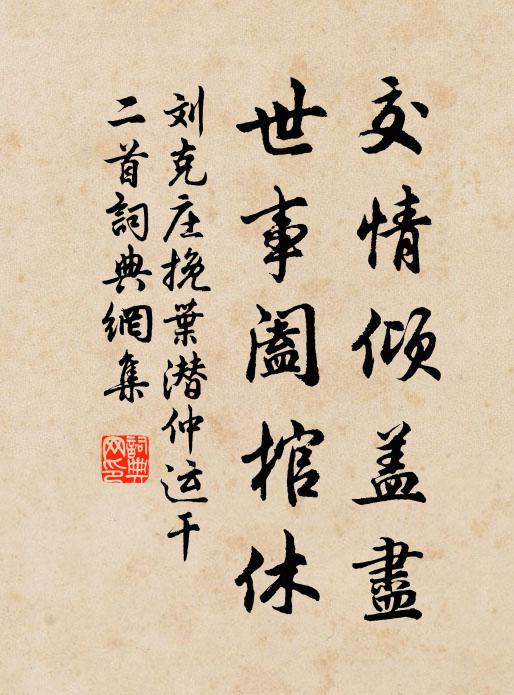 交情倾盖盡
世事阖棺休
刘克庄挽葉潜仲运干
二首詞典網集
詞典网印